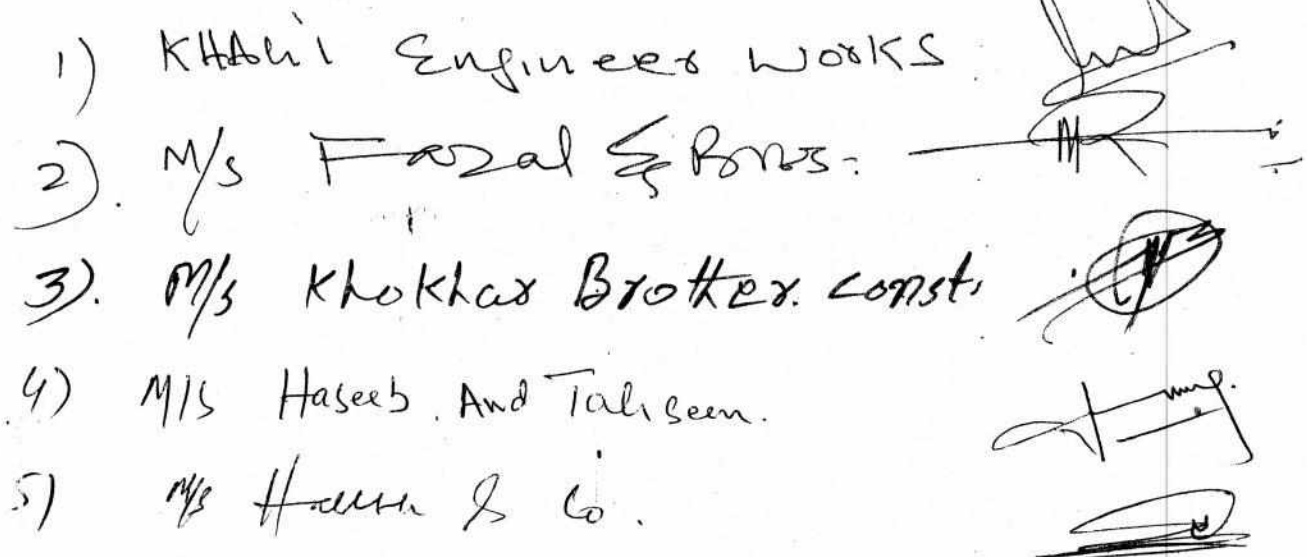 1) KHAlil Engineer works
2). M/s Fazal & Bros.
3). M/s Khokhar Brother. const.
4) M/s Haseeb. And Tahseen.
5) M/s & Co.